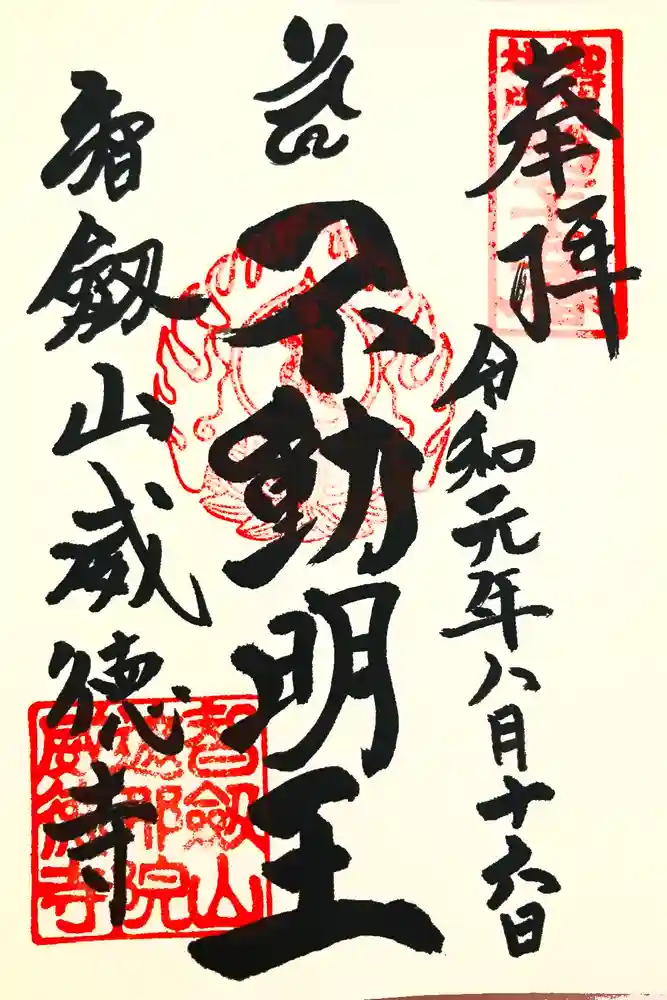 奉拝
令和元年八月十六日
不動明王
智剱山威徳寺
智剱山
遮那院
威徳寺